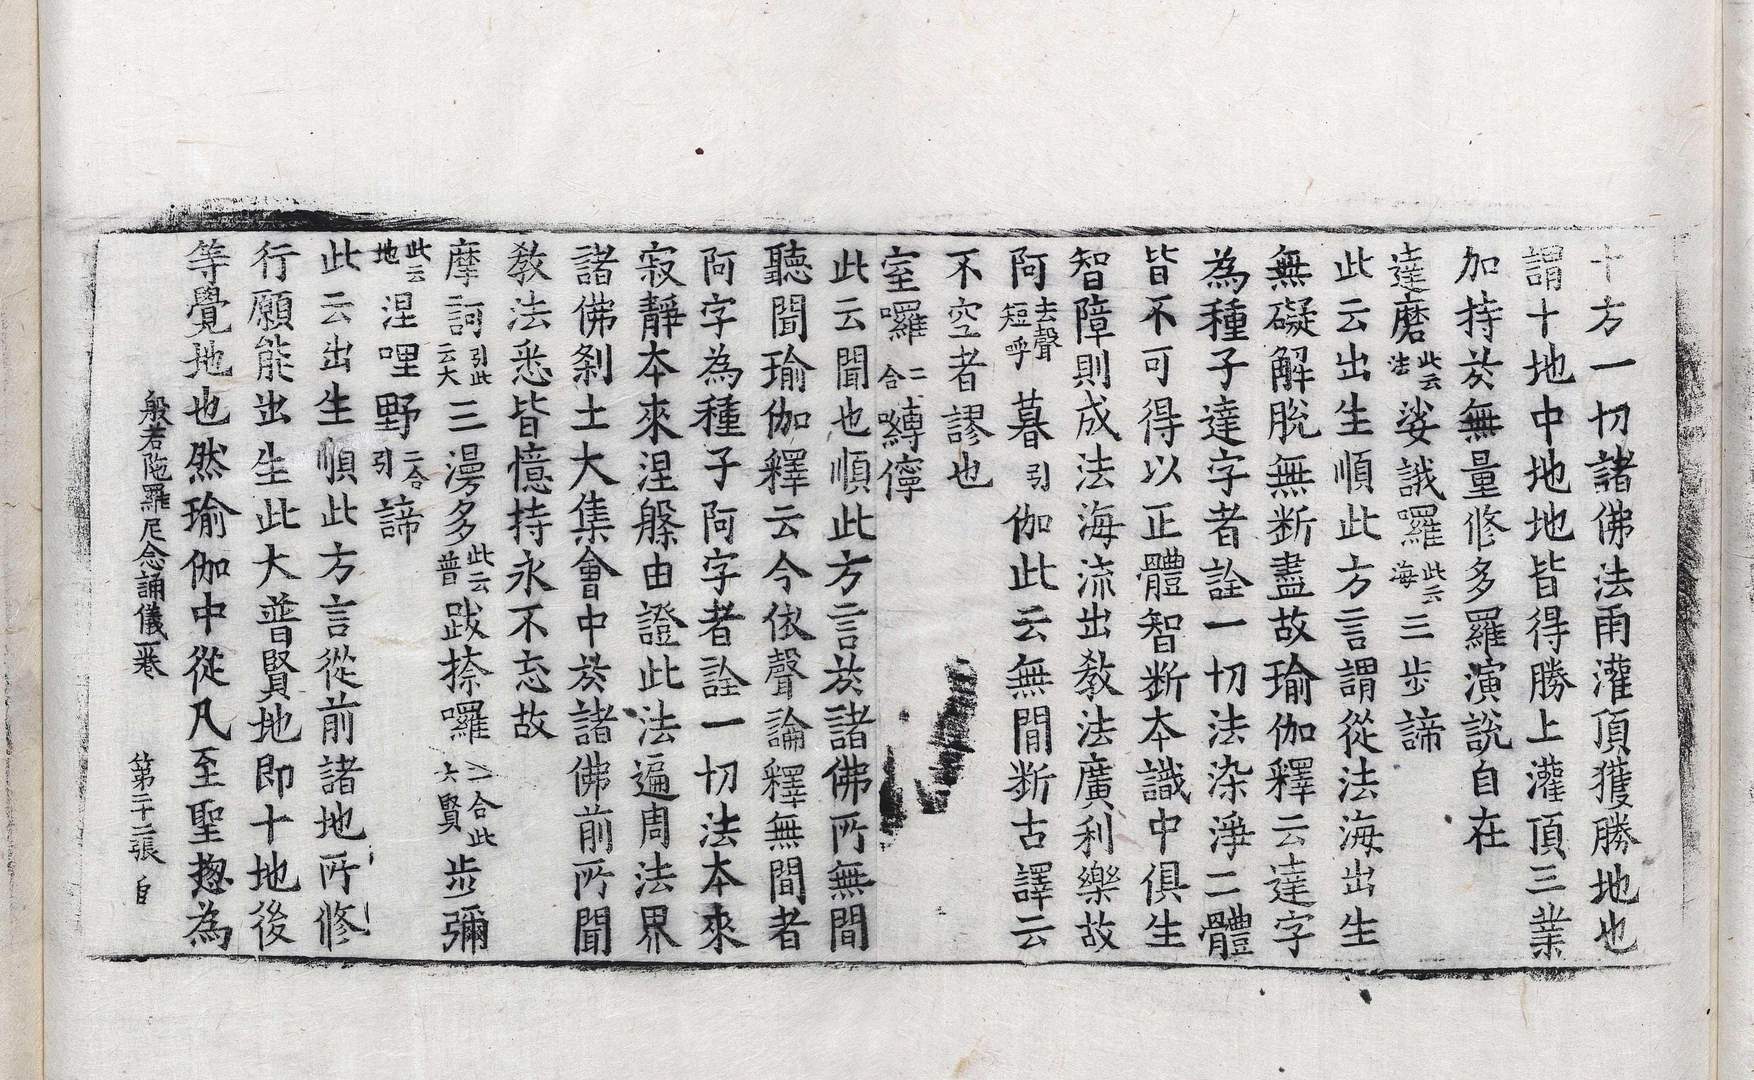 十方一切諸佛法雨灌頂獲勝地也
謂十地中地地皆得勝上灌頂三業
加持於無量修多羅演說自在
達磨此云法娑誐囉此云海三步諦
此云出生順此方言謂從法海出生
無礙解脫無斷盡故瑜伽釋云達字
為種子達字者詮一切法染淨二體
皆不可得以正體智斷本識中俱生
智障則成法海流出教法廣利樂故
阿去聲短呼暮引伽此云無間斷古譯云
不空者謬也
室囉二合嚩儜
此云聞也順此方言於諸佛所無間
聽聞瑜伽釋云今依聲論釋無間者
阿字為種子阿字者詮一切法本來
寂靜本來涅槃由證此法遍周法界
諸佛剎土大集會中於諸佛前所聞
教法悉皆憶持永不忘故
摩訶引此云大三漫多此云普跋捺囉二合此六賢步彌
此云地涅哩野二合引諦
此云出生順此方言從前諸地所修
行願能出生此大普賢地即十地後
等覺地也然瑜伽中從凡至聖揔為
般若陁羅尼念誦儀一卷 第二十二張 自